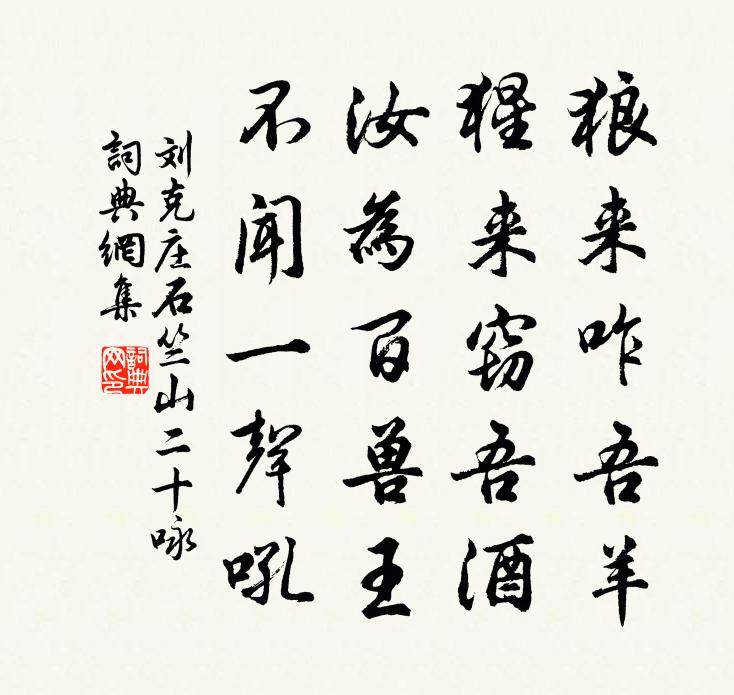 狼来咋吾羊
猩来窃吾酒
汝為百兽王
不闻一聲吼
刘克庄石竺山二十咏
詞典網集
詞典网印